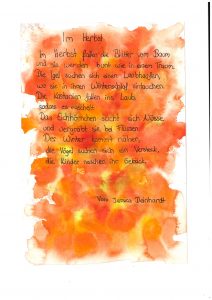 Im Herbst
Im Herbst fallen die Blätter vom Baum
und sie werden bunt wie in einem Traum.
Die Igel suchen sich einen Laubhaufen,
wo sie in ihren Winterschlaf eintauchen.
Die Kastanien fallen ins Laub,
sodass es raschelt.
Das Eichhörnchen sucht sich Nüsse
und vergräbt sie bei Flüssen.
Der Winter kommt näher,
die Vögel suchen sich ein Versteck,
die Kinder naschen ihr Gebäck.
Von